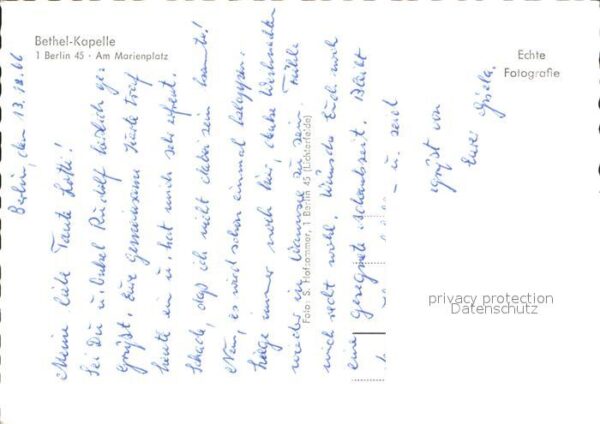 Bethel-Kapelle
1 Berlin 45 · Am Marienplatz
Echte
Fotografie
Berlin, den 13.12.66
Meine liebe Tante Lotti!
Sei Du u. Onkel Rudolf herzlich ge-
grüßt. Eure gemeinsame Karte traf
heute ein u. hat mich sehr erfreut.
Schade, daß ich nicht dabei sein konnte!
Nun, es wird schon einmal klappen.
immer noch hier, Weihnachten
wieder zu sein. Fühle
mich recht wohl. Wünsche Euch noch
eine gesegnete Adventszeit. Bleibt
u. seid
gegrüßt von
Eurer Gisela.
Foto: S. Hofsommer, 1 Berlin 45 (Lichterfelde)
privacy protection
Datenschutz